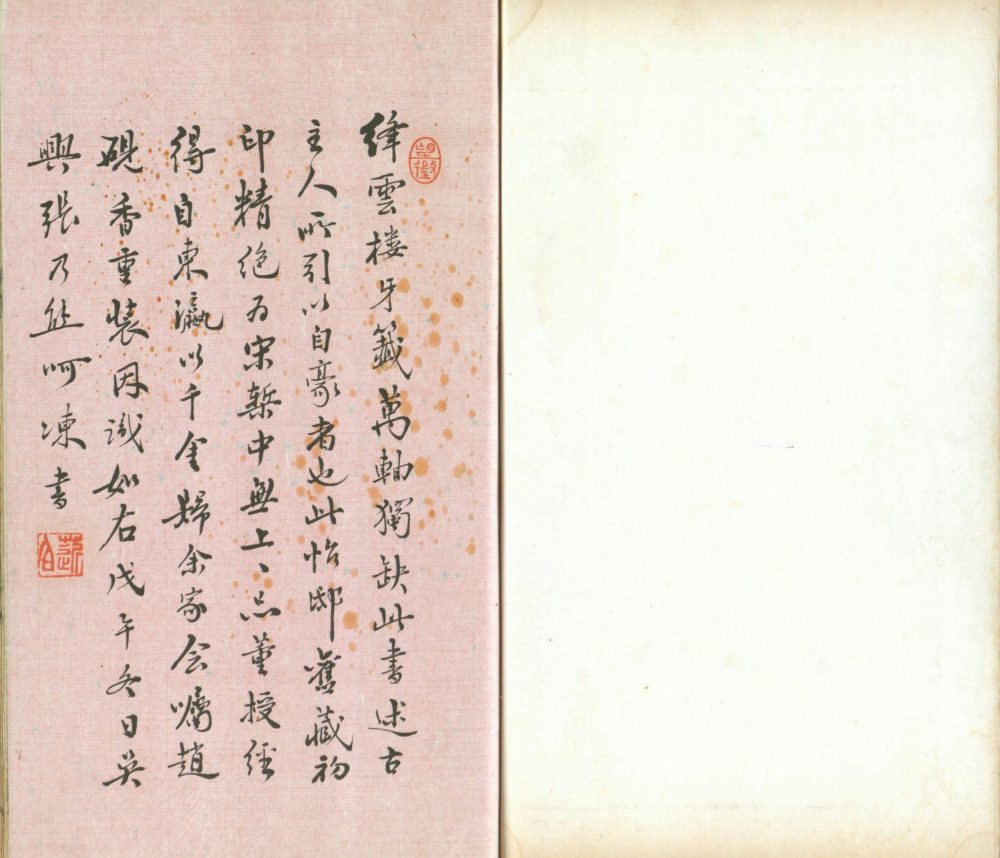 絳雲樓牙籤萬軸獨缺此書述古
主人所引以自豪者也此怡邸舊藏初
印精絕為宋槧中無上上品董授經
得自東瀛以千金歸余家会囑趙
硯香重裝因識如右戊午冬日吳
興張乃熊呵凍書